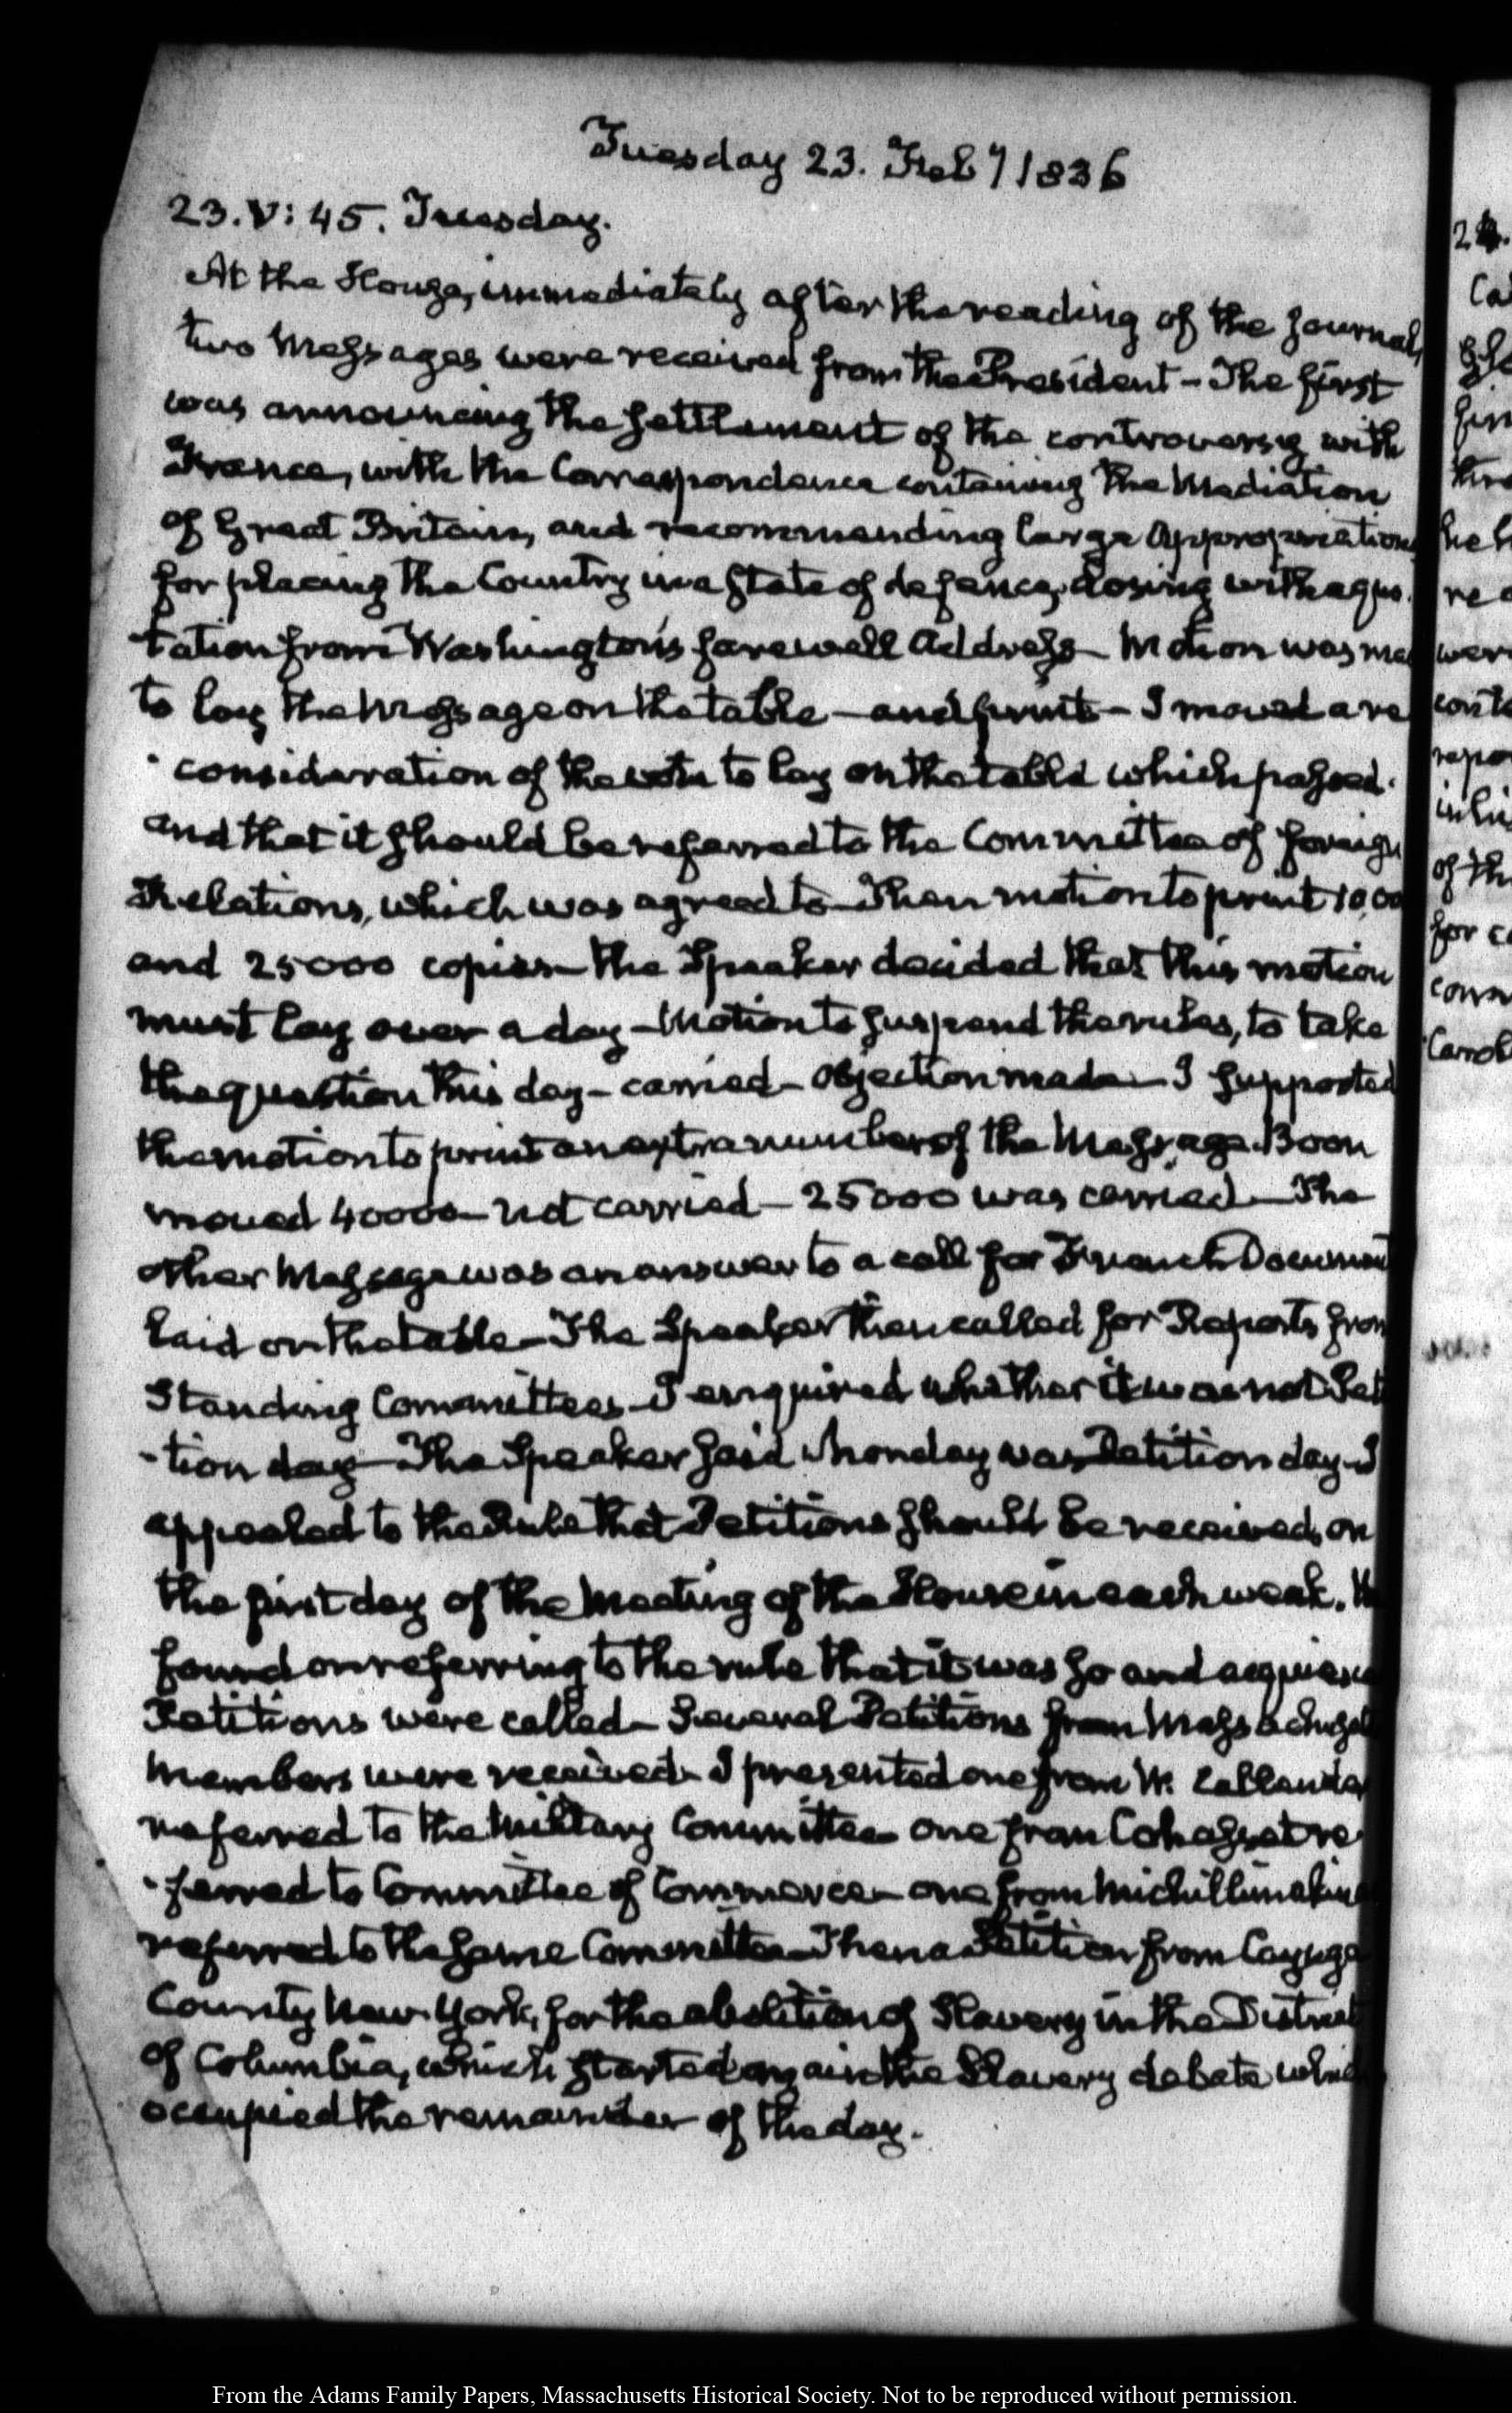 Tuesday 23. Feby 1836
23. V: 45. Tuesday.
At the House, immediately after the reading of the Journal,
two Messages were received from the President – The first
was announcing the settlement of the controversy with
France, with the Correspondence containing the Mediation
of Great Britain, and recommending large appropriations
for placing the Country in a state of defence, closing with a quo-
tation from Washington's farewell Address – Motion was ma
to lay the Message on the table – and print – I moved a re
consideration of the vote to lay on the table which passed.
and that it should be referred to the Committee of foreign
Relations, which was agreed to – Then motion to print 10,00
and 25000 copies – the Speaker decided that this motion
must lay over a day – Motion to suspend the rules, to take
the question this day – carried – objection made – I supported
the motion to print an extra number of the Message. Boon
moved 40000 – not carried – 25000 was carried – The
other Message was an answer to a call for French Document
laid on the table – The Speaker then called for Reports from
Standing Committees – I enquired whether it was not Peti
-tion day – The Speaker said Monday was Petition day – I
appealed to the Rule that Petitions should be received, on
the first day of the meeting of the House in each week. H
found on referring to the rule that it was so and acquiesc
Petitions were called – Several Petitions from Massachuset
members were received – I presented one from W.
referred to the Military Committee – one from Cohasset re
-ferred to Committee of Commerce – one from Michillimakina
referred to the same Committee – Then a Petition from Cayuga
County New-York, for the abolition of Slavery in the District
of Columbia, which started again the Slavery debate which
occupied the remainder of the day.
24.
Ca
fin
he h
re
were
conte
repo
in his
of th
for c
com
Carol
From the Adams Family Papers, Massachusetts Historical Society. Not to be reproduced without permission.